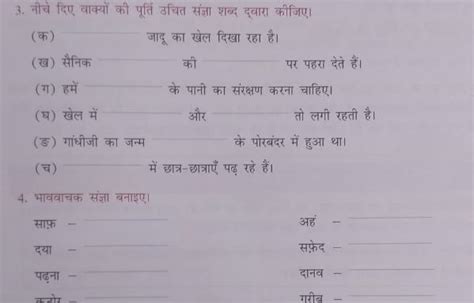 3. नीचे दिए वाक्यों की पूर्ति उचित संज्ञा शब्द द्वारा कीजिए।
(क) ____________ जादू का खेल दिखा रहा है।
(ख) सैनिक ____________ की ____________ पर पहरा देते हैं।
(ग) हमें ____________ के पानी का संरक्षण करना चाहिए।
(घ) खेल में ____________ और ____________ तो लगी रहती है।
(ङ) गांधीजी का जन्म ____________ के पोरबंदर में हुआ था।
(च) ____________ में छात्र-छात्राएँ पढ़ रहे हैं।
4. भाववाचक संज्ञा बनाइए।
साफ़ – ____________ अहं – ____________
दया – ____________ सफ़ेद – ____________
पढ़ना – ____________ दानव – ____________
कठोर – ____________ गरीब – ____________